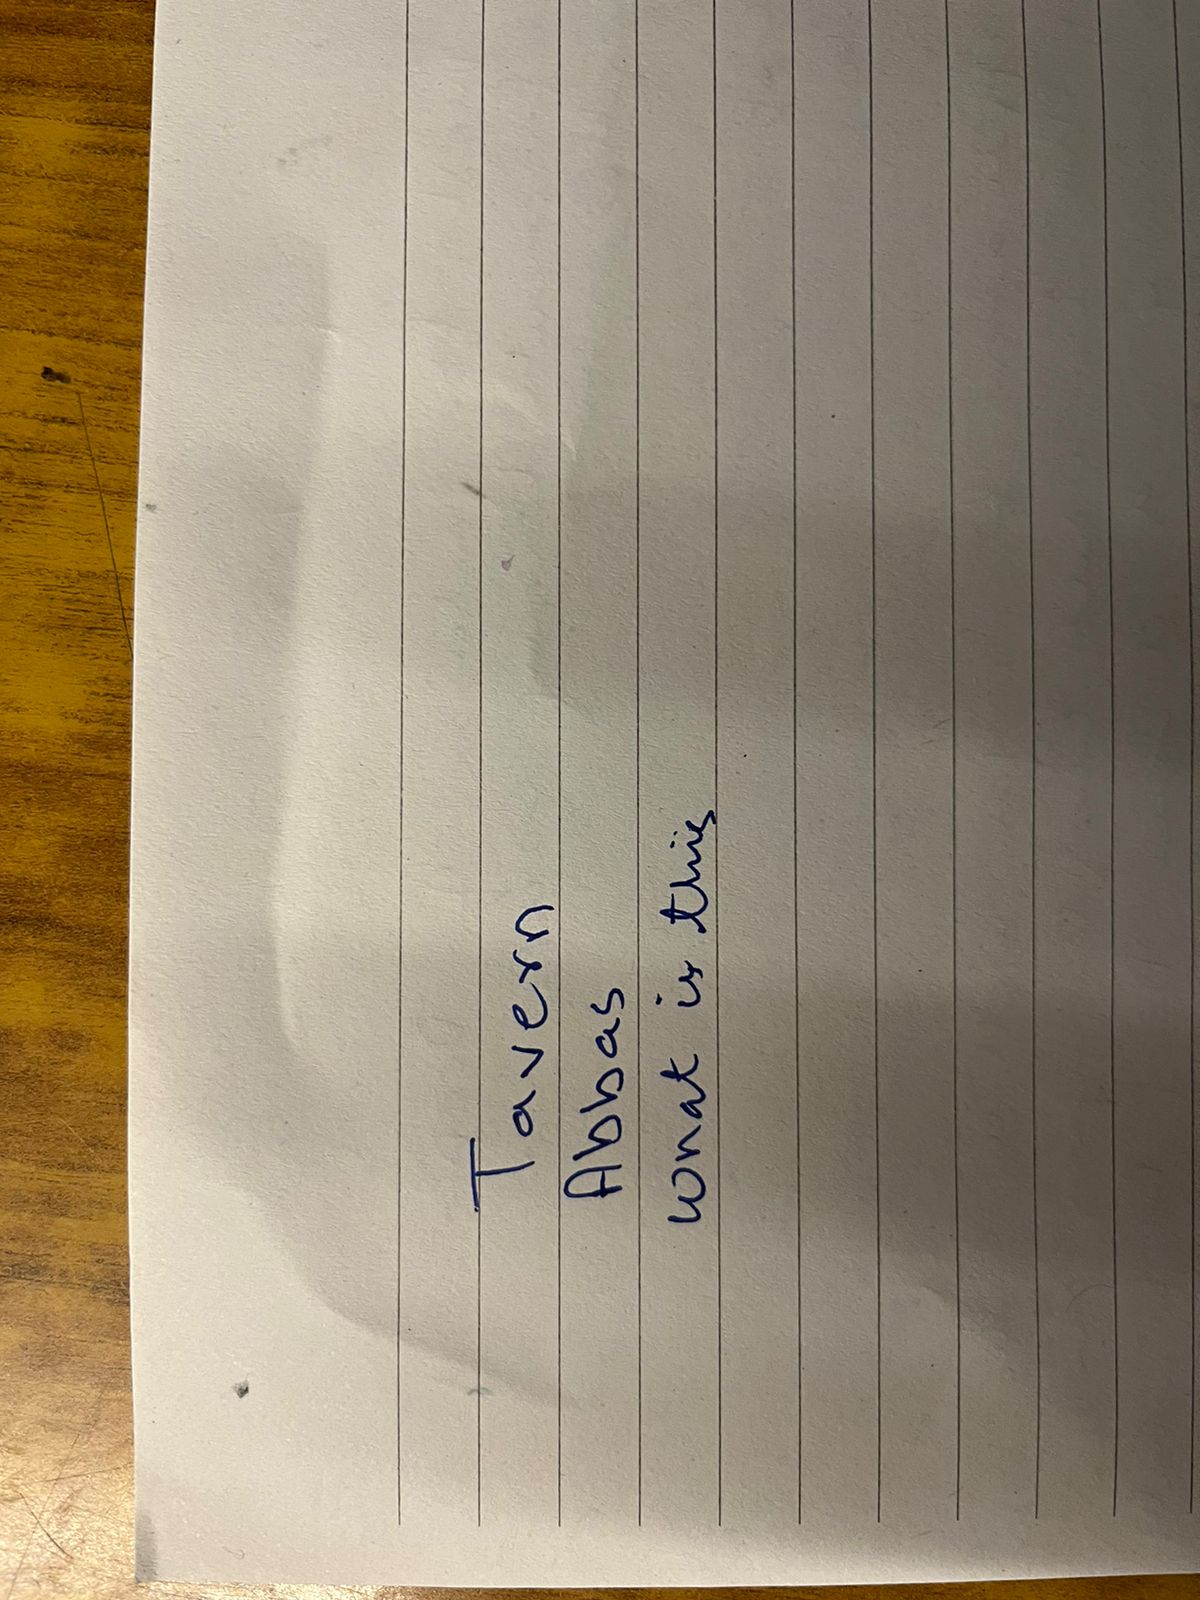 Tavern
Abbas
what is this